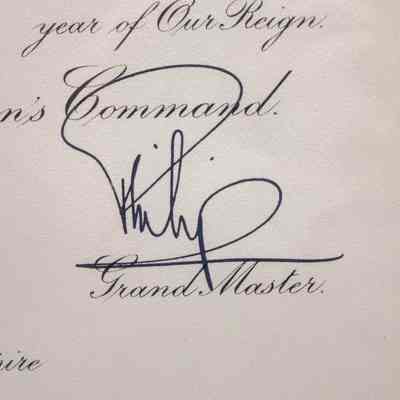 year of Our Reign.
n's Command.
Philip
Grand Master.
pire